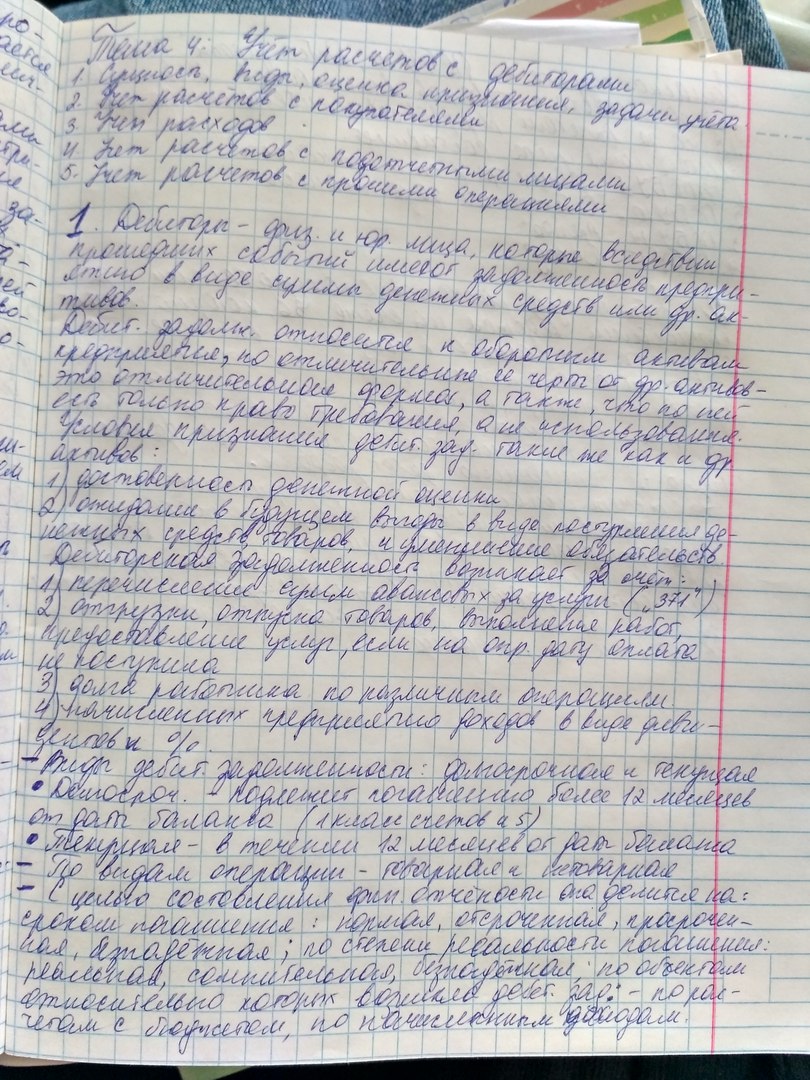 Тема 4: Учёт расчетов с дебиторами
1. Сущность, виды, оценка признания, задачи учёта.
2. Учет расчётов с покупателями
3. Учет расходов
4. Учет расчетов с подотчетными лицами
5. Учет расчетов с прочими операциями
1. Дебиторы - физ. и юр. лица, которые вследствии
прошедших событий имеют задолженность предпри-
ятию в виде суммы денежных средств или др. ак-
тивов.
Дебит. задолж. относится к оборотным активам
предприятия, но отличительные её черты от др. активов -
это отличительная форма, а также, что по ней
есть только право требования, а не использования.
Условия признания дебит. зад. такие же как и др.
активов:
1) достоверность денежной оценки
2) ожидание в будущем выгоды в виде поступления де-
нежных средств, товаров, и уменьшение обязательств.
Дебиторская задолженность возникает за счёт:
1) перечисление сумм авансовых за услуги („371")
2) отгрузки, отпуска товаров, выполнения работ,
предоставление услуг, если на опр. дату оплата
не поступила
3) долга работника по различным операциям
4) начисленных предприятию доходов в виде диви-
дентов и %.
- Виды дебит. задолженности: долгосрочная и текущая
• Долгосроч. - подлежит погашению более 12 месяцев
от даты баланса (1 класс счетов и 5)
• Текущая - в течении 12 месяцев от даты баланса
- По видам операции - товарная и нетоварная
- С целью составления фин. отчёности она делится на:
сроком погашения: нормая, отсроченная, просрочен-
ная, безнадёжная; по степени реальности погашения:
реальная, сомнительная, безнадёжная; по объектам
относительно которых возникла дебет. зад: - по рас-
четам с бюджетом, по начисленным доходам.